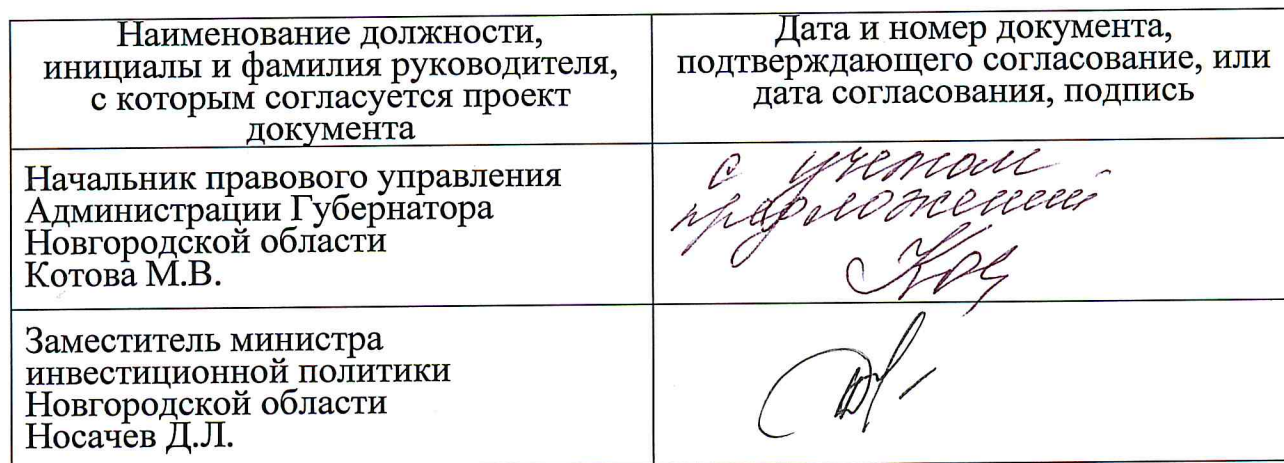 Наименование должности,
инициалы и фамилия руководителя,
с которым согласуется проект
документа
Дата и номер документа,
подтверждающего согласование, или
дата согласования, подпись
Начальник правового управления
Администрации Губернатора
Новгородской области
Котова М.В.
с учетом
предложений
Заместитель министра
инвестиционной политики
Новгородской области
Носачев Д.Л.